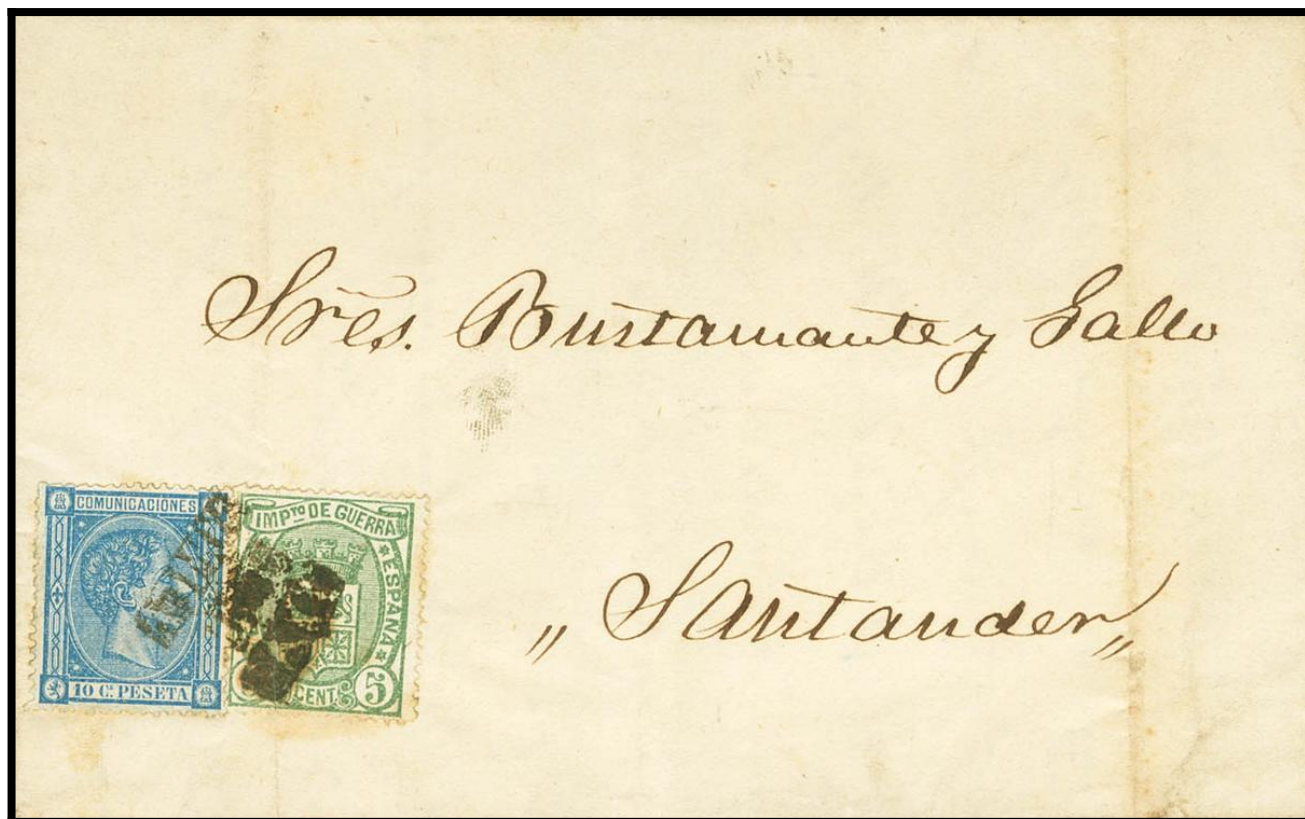 Sres. Bustamante y Gallo
„ Santander „
COMUNICACIONES
10 Cs. PESETA
IMPTO DE GUERRA
ESPAÑA
CENT. 5